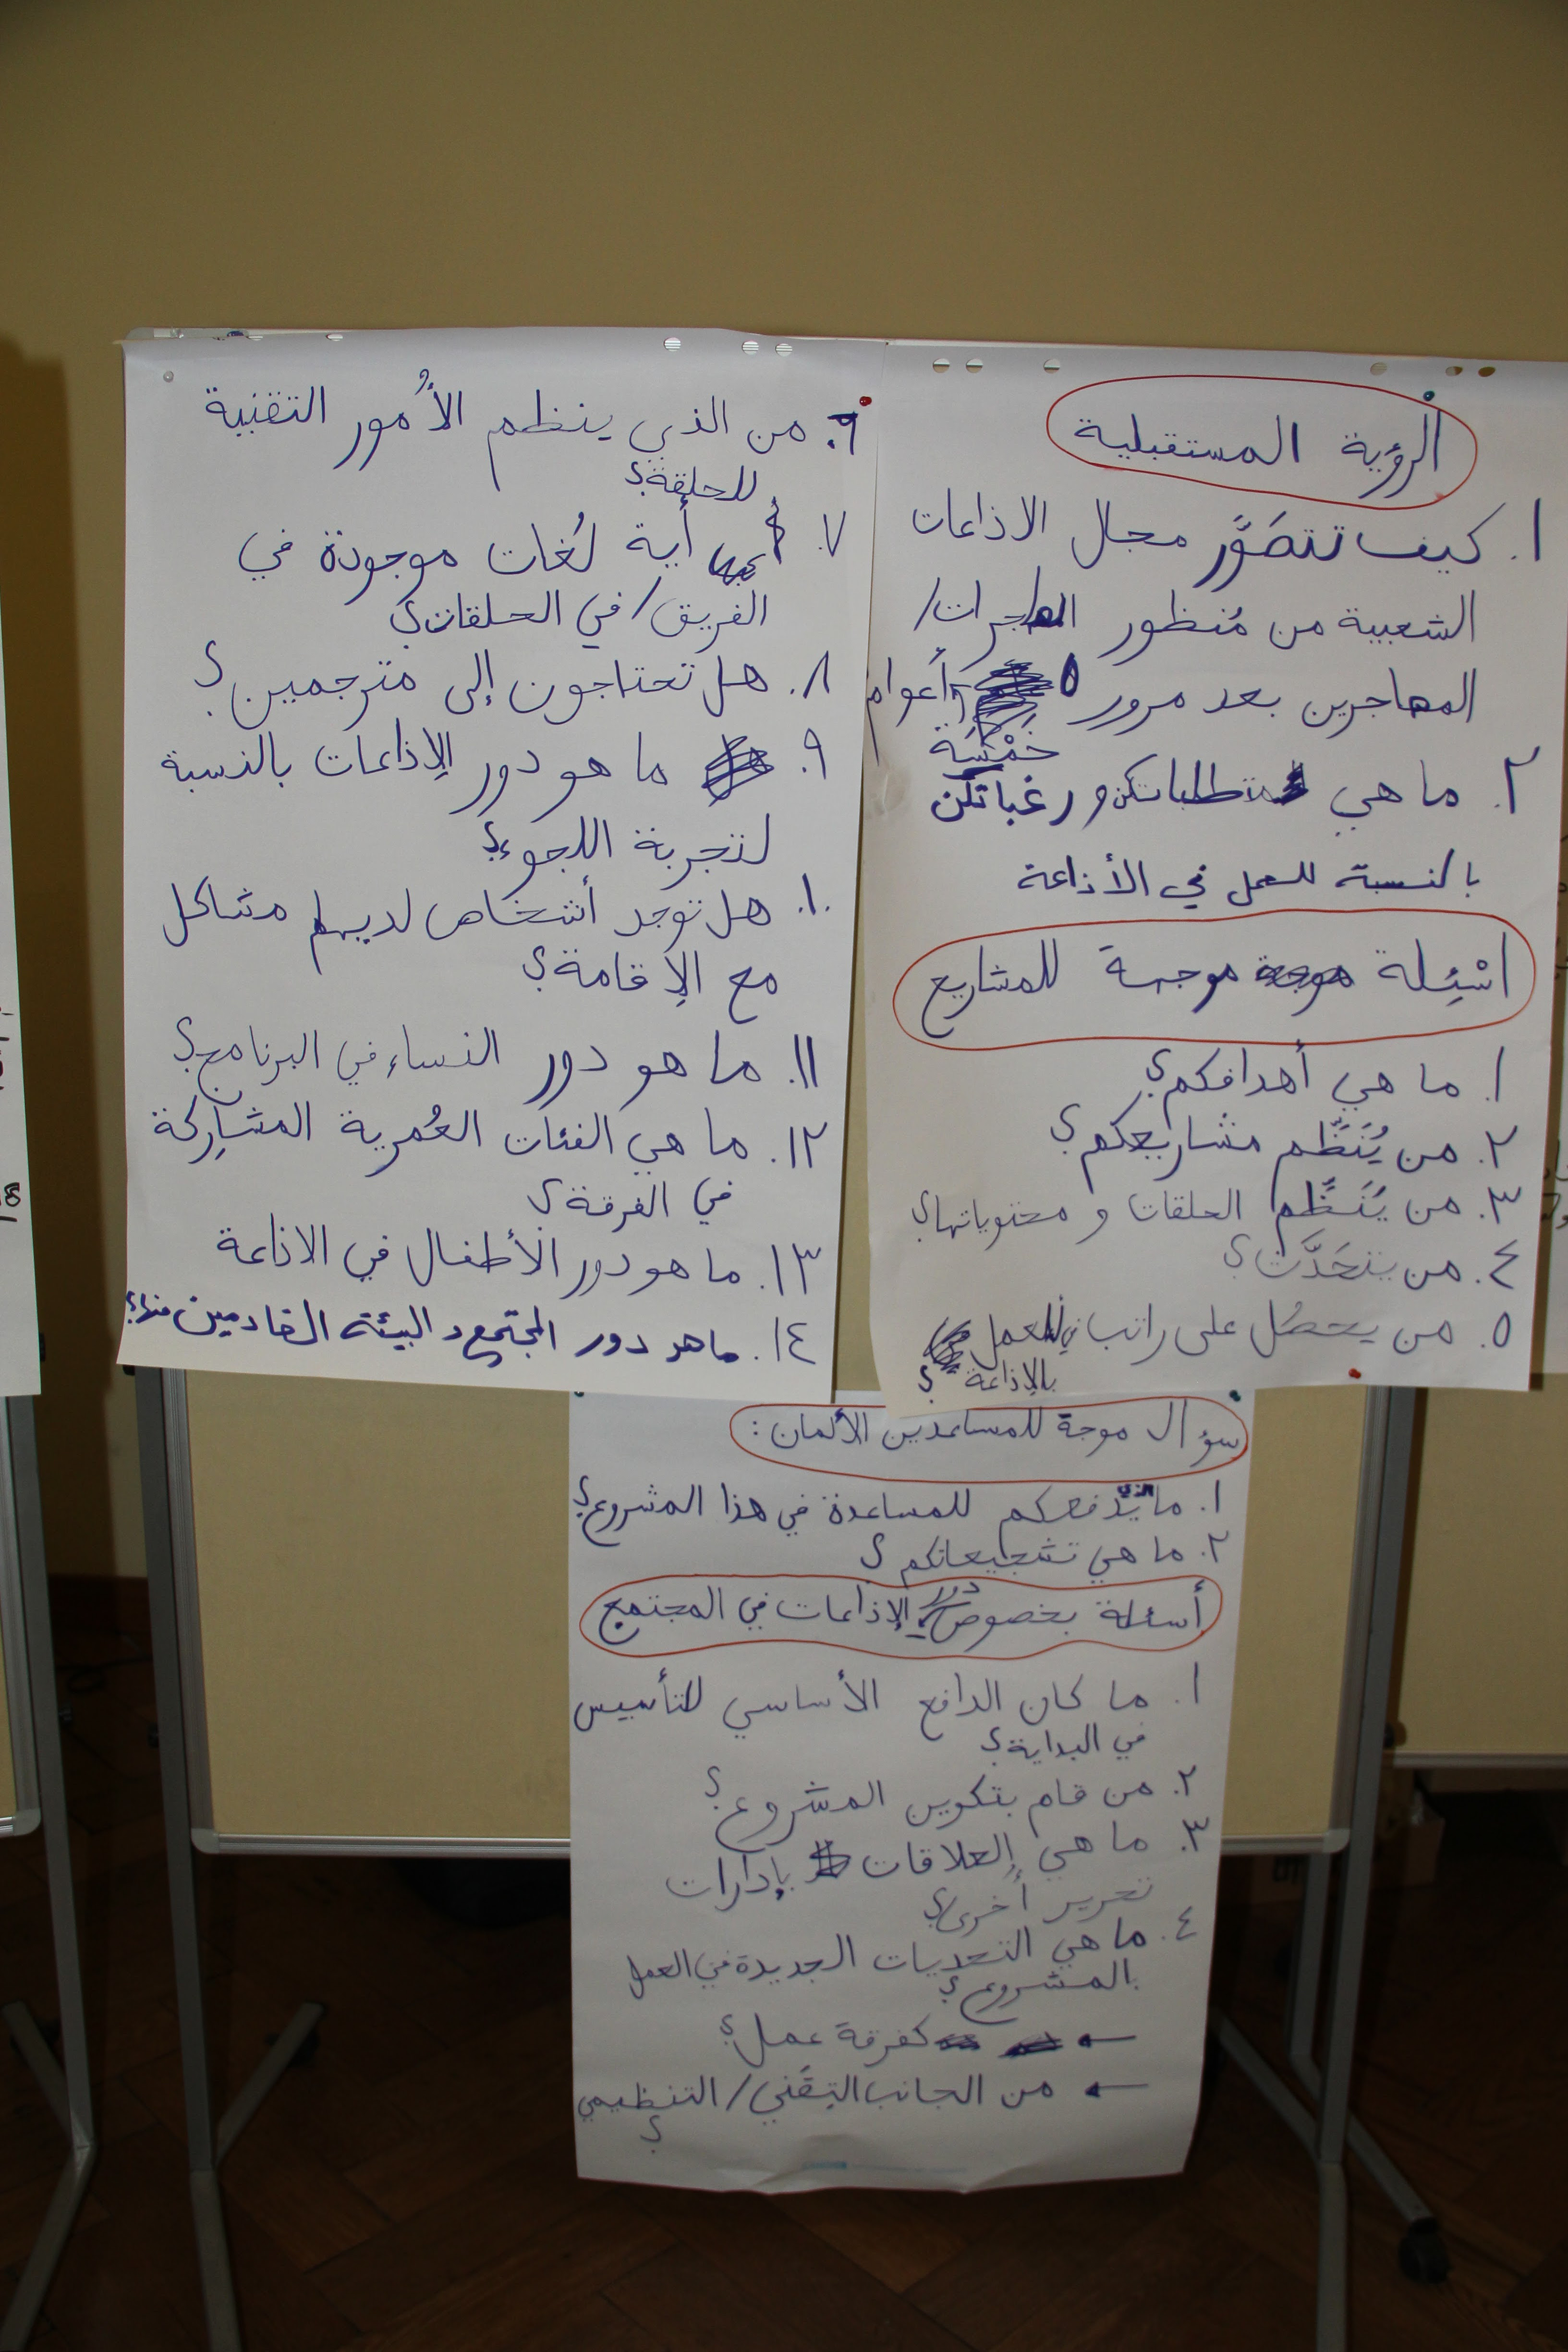 الرؤية المستقبلية
١. كيف تتصَوَّر مجال الاذاعات
الشعبية من مُنظور المهاجرات/
المهاجرين بعد مرور ٥ أعوام
خَمْسَة
٢. ما هي متطلباتكن و رغباتكن
بالنسبة للعمل في الأذاعة
اسْئِلة موجهة للمشاريع
١. ما هي أهدافكم؟
٢. من يُنَظِّم مشاريعكم؟
٣. من يُنَظِّم الحلقات و محتوياتها؟
٤. من يتحَدَّث؟
٥. من يحصُل على راتب في العمل
بالإذاعة ؟
٦. من الذي ينظم الأُمور التقنية
للحلقة؟
٧. أية لُغات موجودة في
الفريق/في الحلقات؟
٨. هل تحتاجون إلى مترجمين؟
٩. ما هو دور الإذاعات بالنسبة
لتجربة اللجوء؟
١٠. هل توجد أشخاص لديهم مشاكل
مع الإقامة؟
١١. ما هو دور النساء في البرنامج؟
١٢. ما هي الفئات العُمرية المشارِكة
في الفرقة؟
١٣. ما هو دور الأطفال في الاذاعة
١٤. ماهو دور المجتمع و البيئة القادمين منها؟
سؤال موجة للمساعدين الألمان:
١. ما الذي يدفعكم للمساعدة في هذا المشروع؟
٢. ما هي تشجيعاتكم؟
أسئلة بخصوص دور الإذاعات في المجتمع
١. ما كان الدافع الأساسي للتأسيس
في البداية؟
٢. من قام بتكوين المشروع؟
٣. ما هي العلاقات بإدارات
تحرير أخرى؟
٤. ما هي التحديات الجديدة في العمل
بالمشروع؟
← كفرقة عمل؟
← من الجانب التِقَني/التنظيمي
؟